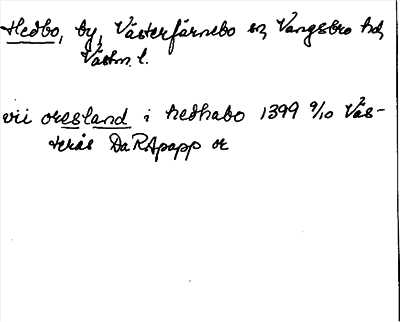 Hedbo, by, Västerfärnebo sn, Vangsbro hd,
Västm. l.
vii oresland i hedhabo 1399 9/10 Väs-
terås DaRApapp or